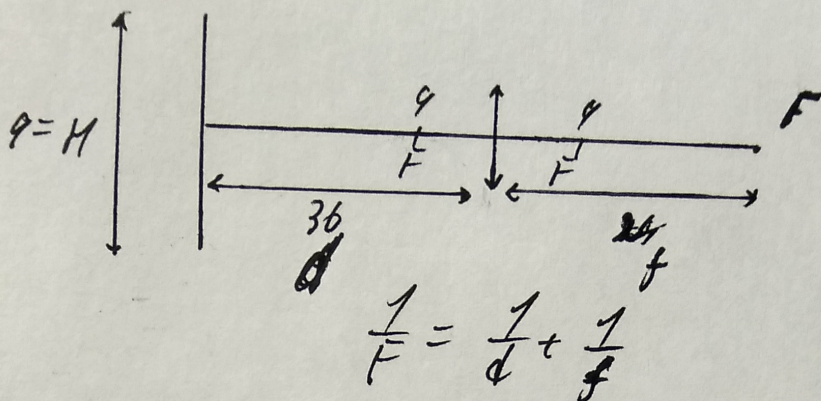 9 = H
9
9
F
F
F
36
d
f
1/F = 1/d + 1/f